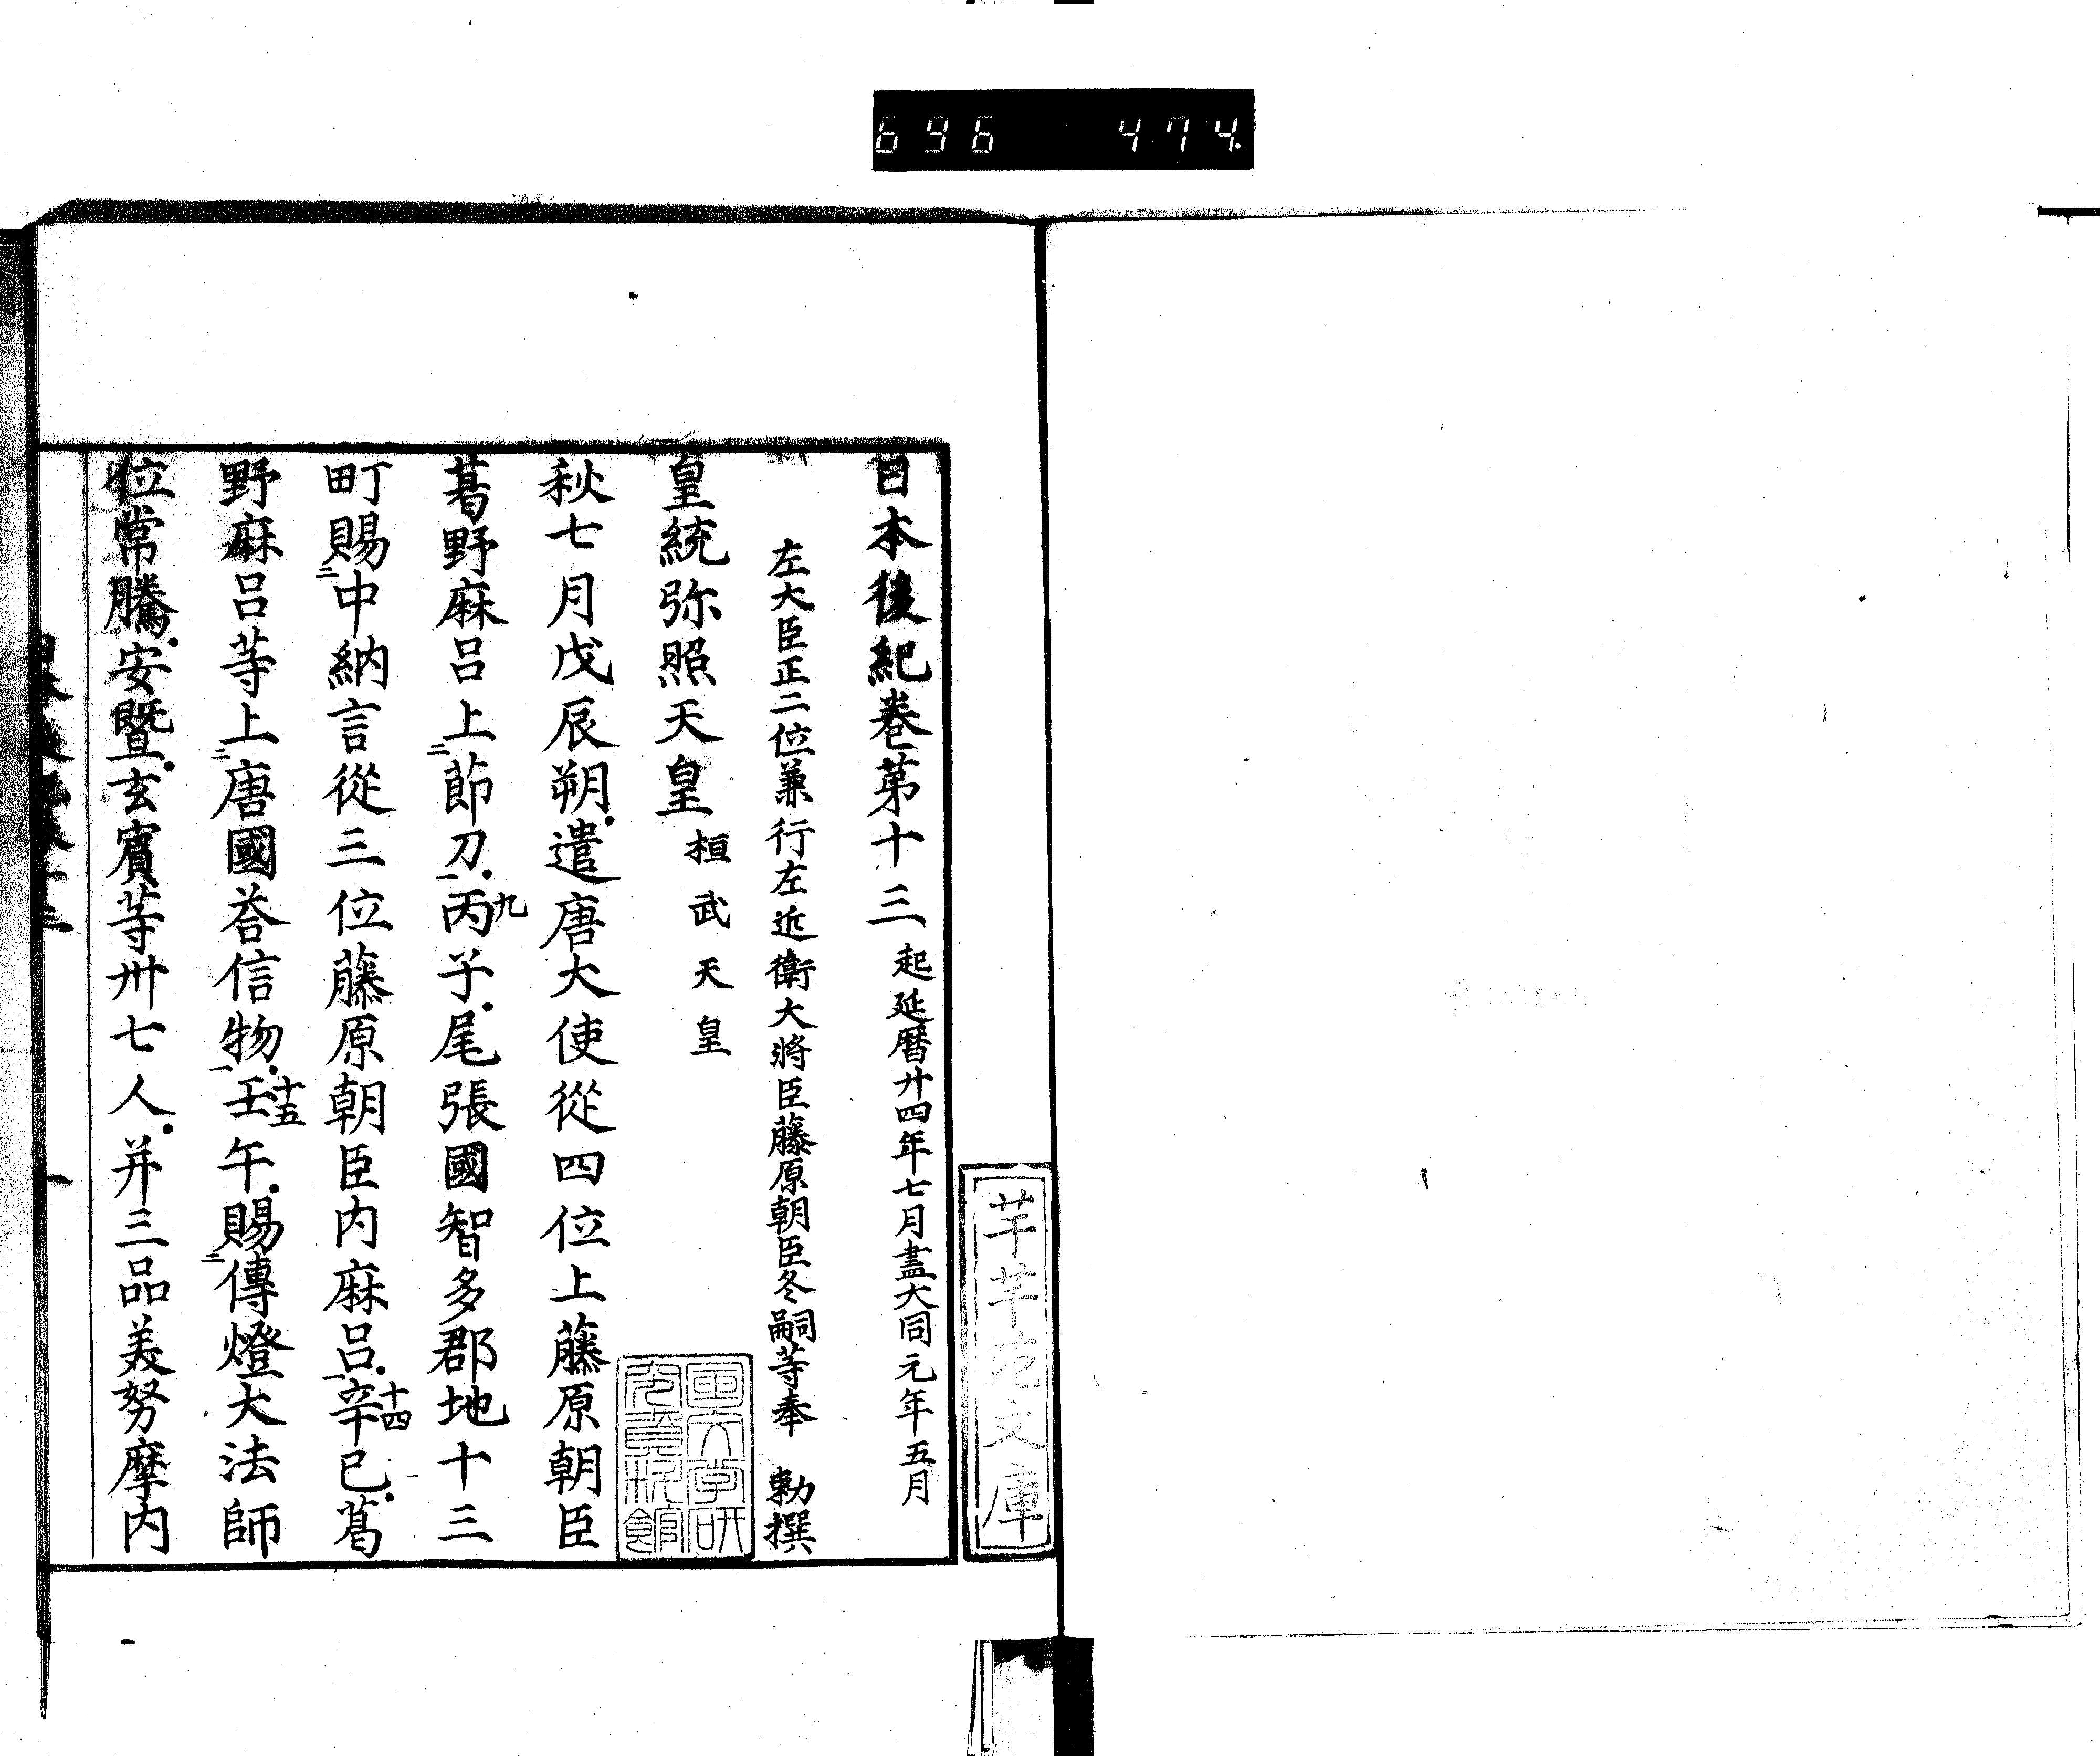 696 474.
日本後紀卷第十三 起延暦廿四年七月盡大同元年五月
左大臣正二位兼行左近衛大將臣藤原朝臣冬嗣等奉 勅撰
皇統弥照天皇 桓武天皇
秋七月戊辰朔遣唐大使從四位上藤原朝臣
葛野麻呂上二節刀一丙子九尾張國智多郡地十三
町賜二中納言從三位藤原朝臣内麻呂一辛巳十四葛
野麻呂等上二唐國荅信物一壬午十五賜二傳燈大法師
位常騰安暨玄賓等卅七人并三品美努摩内
芊芊 文庫